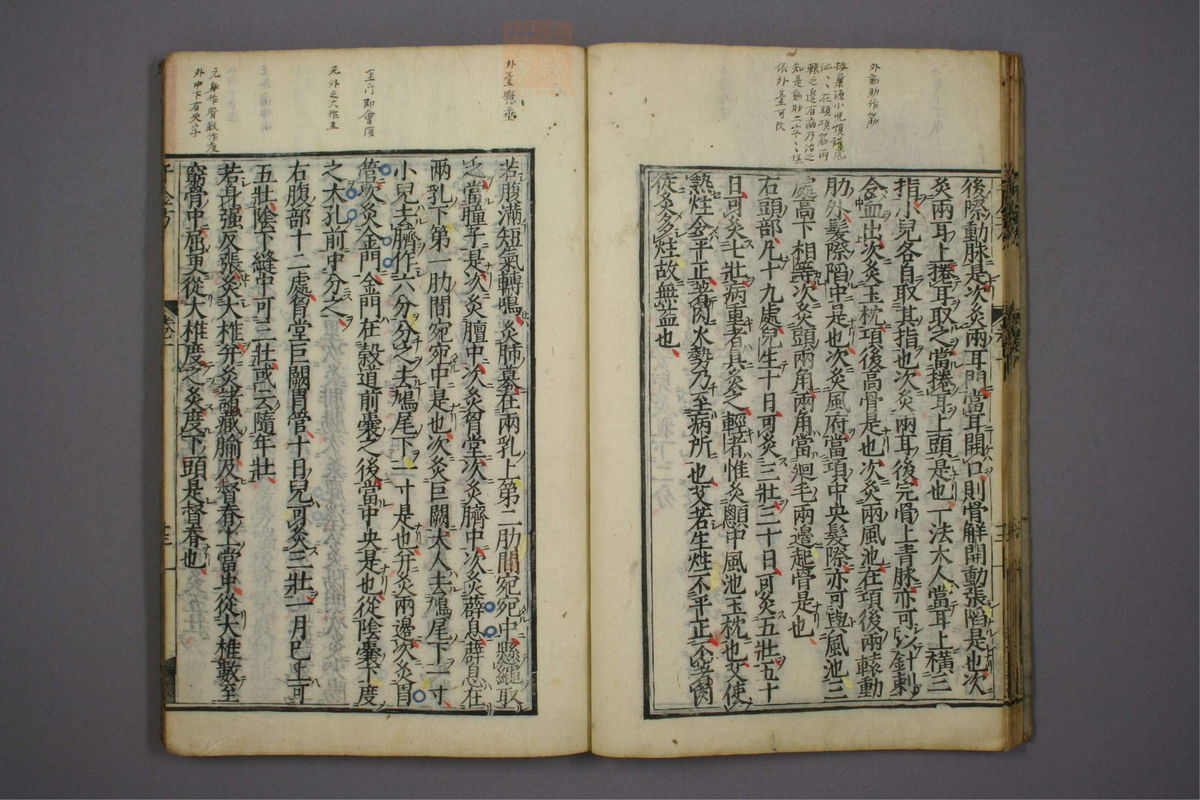 外䑓動肋作筋
後際動脉是次灸兩耳門當耳開口則骨解開動張陷是也次
灸兩耳上捲耳取之當捲耳上頭是也一法大人當耳上橫三
指小兒各自取其指也次灸兩耳後完骨上青脉亦可以針刺
令血出次灸玉枕項後高骨是也次灸兩風池在項後兩轅動
肋外髮際陷中是也次灸風府當項中央髮際亦可與風池三
處高下相等次灸頭兩角兩角當廻毛兩邊起骨是也
右頭部凡十九處兒生十日可灸三壯三十日可灸五壯五十
日可灸七壯病重者具灸之輕者惟灸顖中風池玉枕也艾使
熟炷令平正著肉火勢乃至病所也艾若生炷不平正不著肉
徒灸多炷故無益也
外臺懸垂
金門即會陰
元外之大作至
若腹滿短氣轉鳴灸肺募在兩乳上第二肋間宛宛中懸繩取
之當瞳子是次灸膻中次灸胷堂次灸臍中次灸薜息薜息在
兩乳下第一肋間宛宛中是也次灸巨闕大人去鳩尾下一寸
小兒去臍作六分分之去鳩尾下一寸是也并灸兩邊次灸胃
管次灸金門金門在穀道前囊之後當中央是也從陰囊下度
之大孔前中分之
右腹部十二處胷堂巨闕胃管十日兒可灸三壯一月已上可
五壯陰下縫中可三壯或云隨年壯
若身强反張灸大椎并灸諸藏腧及督脊上當中從大椎數至
窮骨中屈更從大椎度之灸度下頭是督脊也